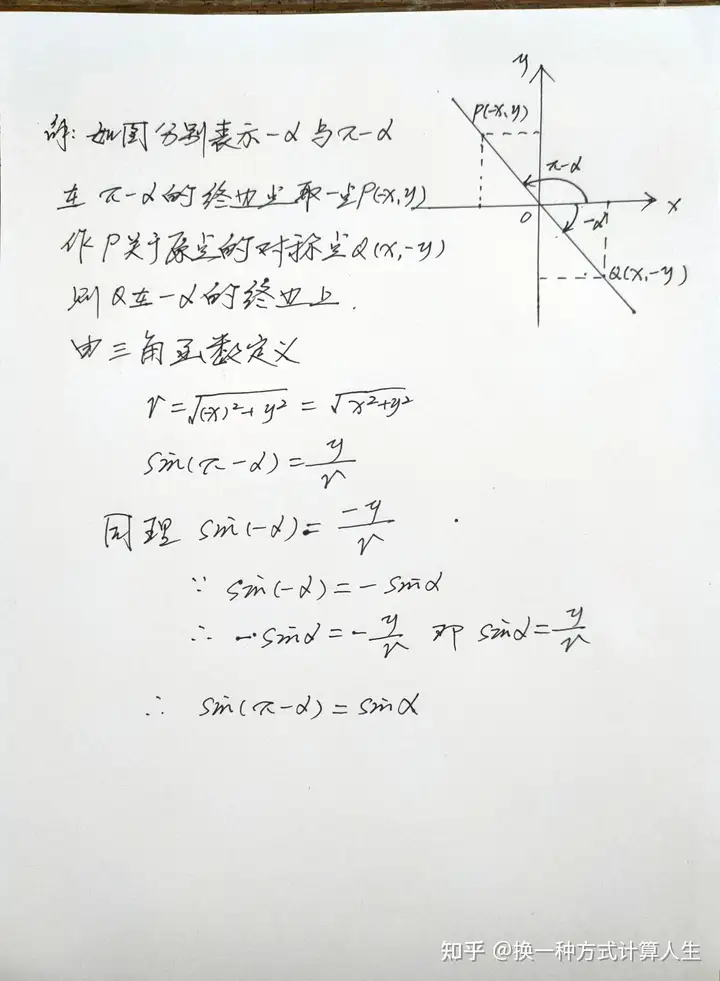 解:如图分别表示-α与π-α
在π-α的终边上取一点P(-x,y)
作P关于原点的对称点Q(x,-y)
则Q在-α的终边上.
由三角函数定义
r=√((-x)²+y²)=√(x²+y²)
sin(π-α)=y/r
同理 sin(-α)=-y/r
∵ sin(-α)=-sinα
∴ -sinα=-y/r 即 sinα=y/r
∴ sin(π-α)=sinα
y
P(-x,y)
π-α
O
x
-α
Q(x,-y)
知乎 @换一种方式计算人生